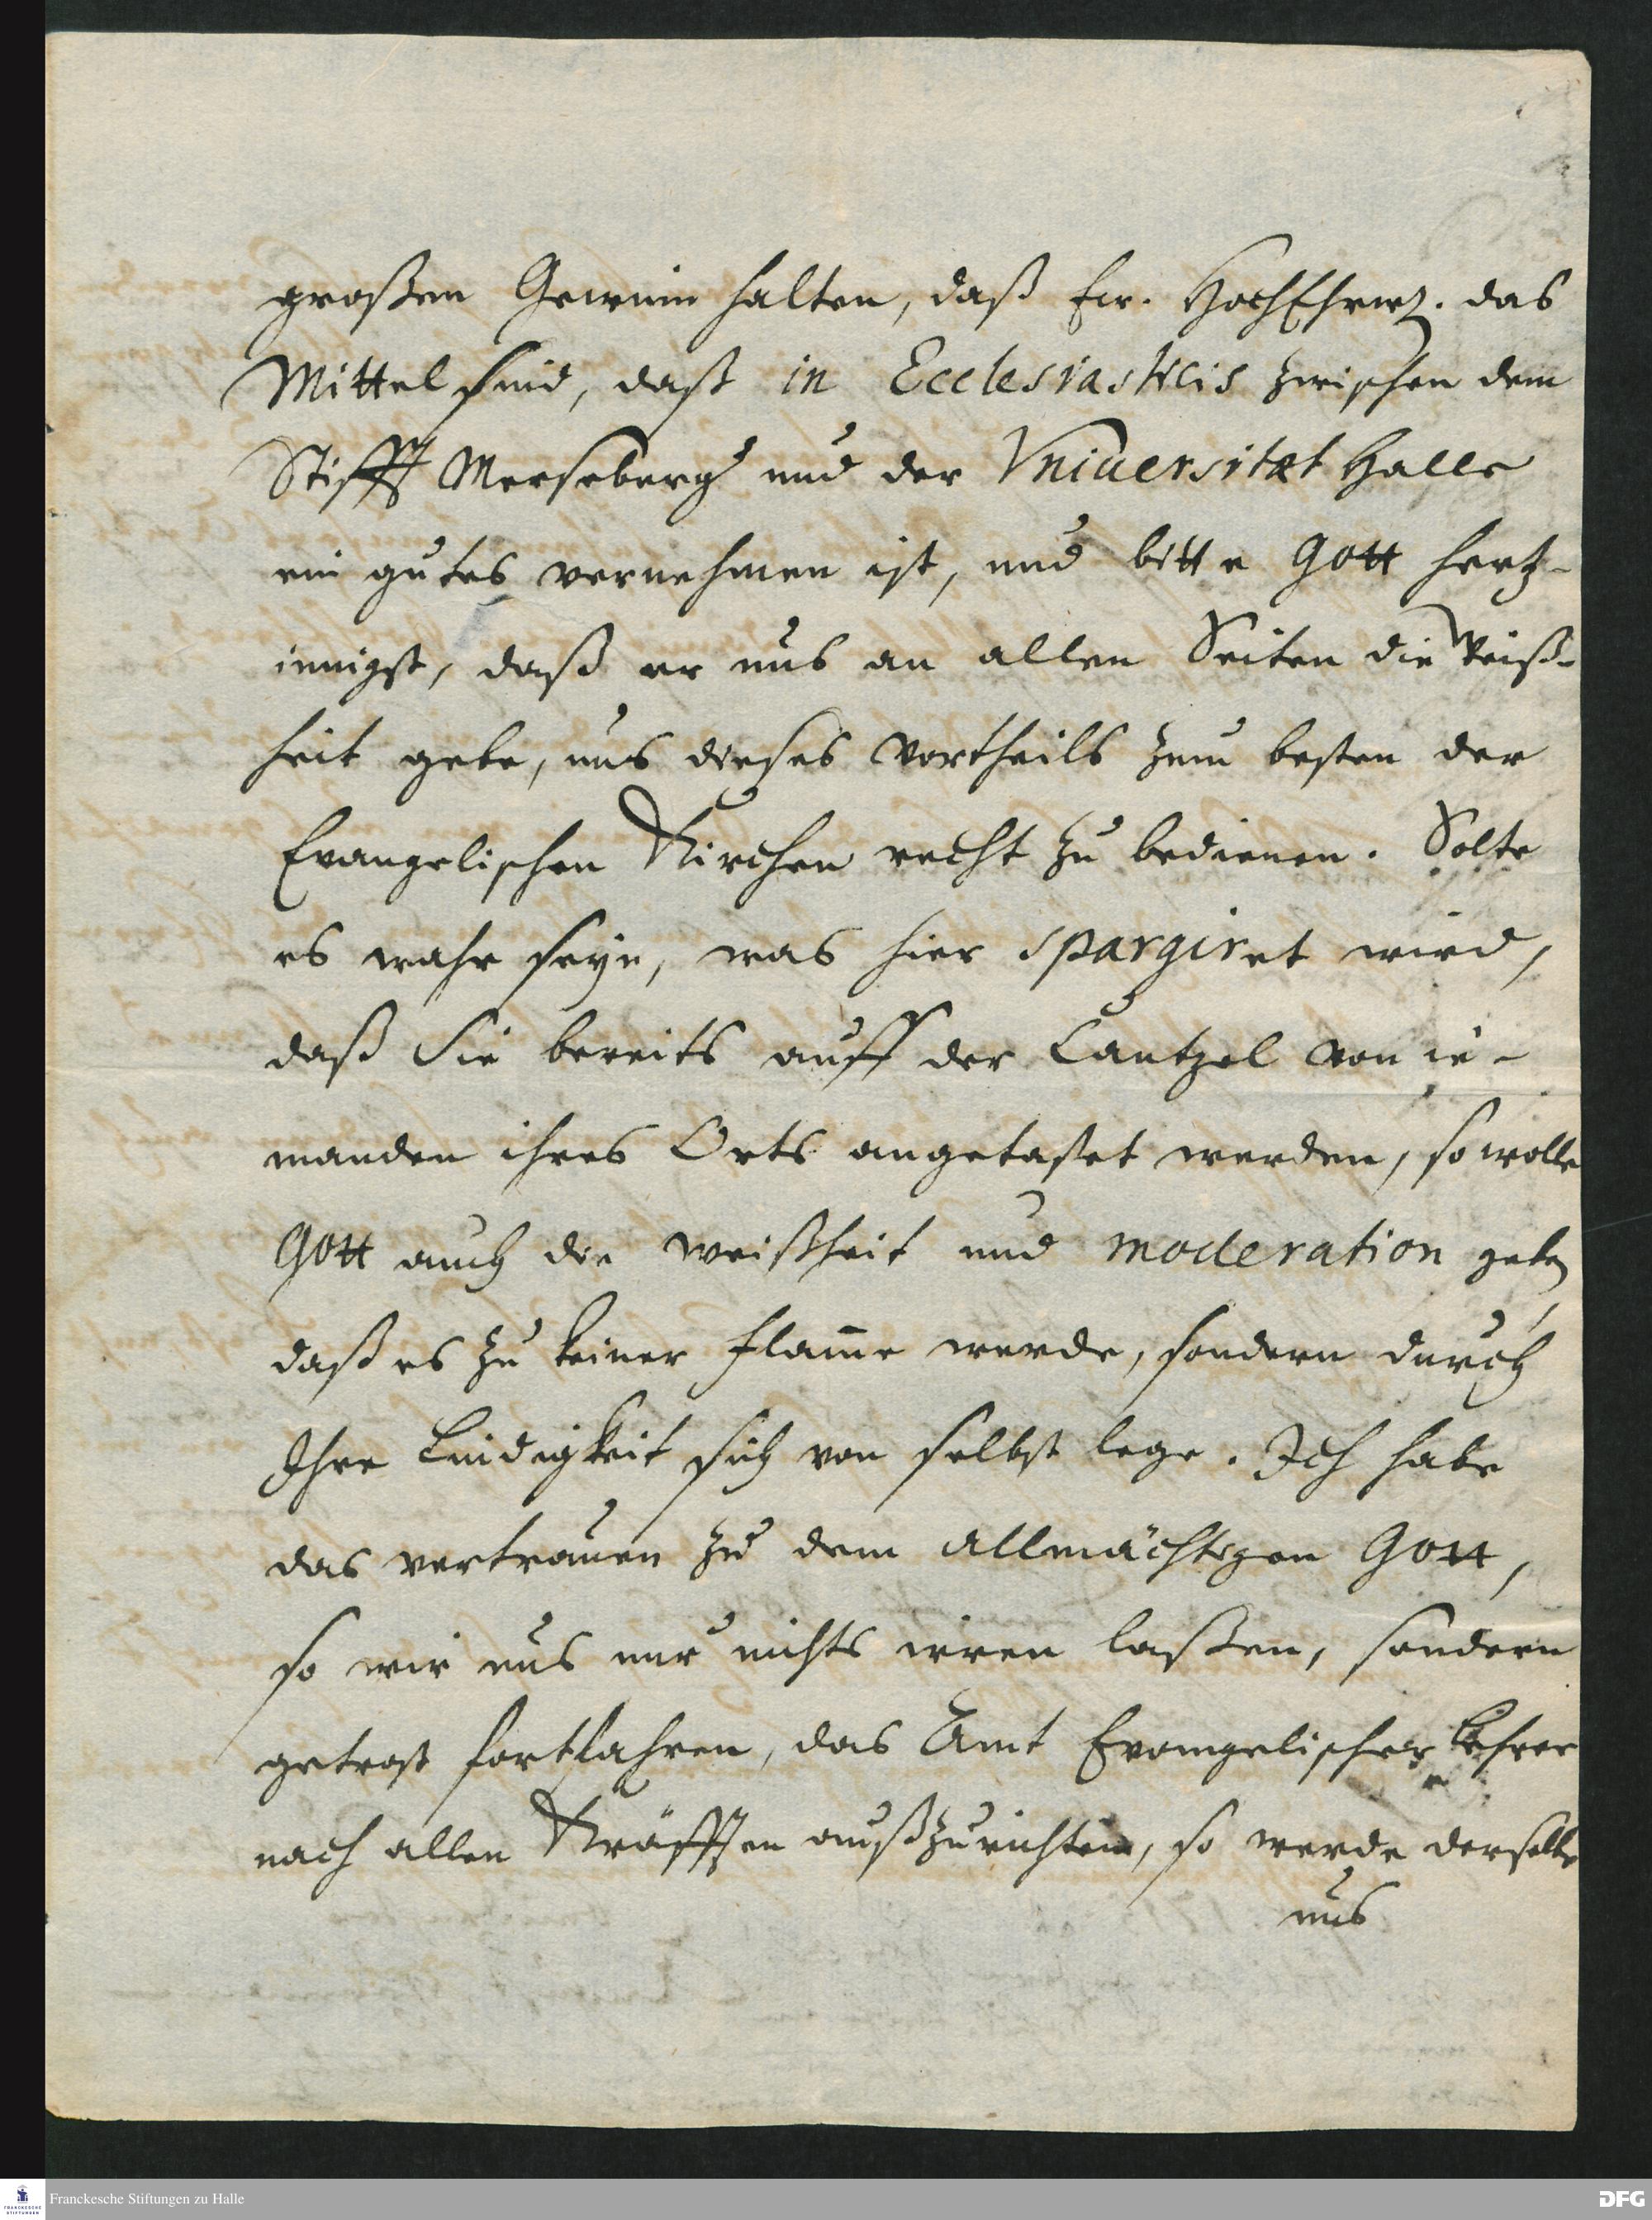 großen Gewinn halten, daß Ew. HochEhrw. das
Mittel sind, daß in Ecclesiasticis zwischen dem
Stifft Merseburg und der Vniuersitæt Halle
ein gutes vernehmen ist, und bitte Gott hertz-
innigst, daß er uns an allen Seiten die Weiß-
heit gebe, uns dieses Vortheils zum besten der
Evangelischen Kirchen recht zu bedienen. Solte
es wahr seyn, was hier spargiret wird,
daß Sie bereits auff der Cantzel von ie-
manden ihres Orts angetastet werden, so wolle
Gott auch die Weißheit und moderation geben,
daß es zu keiner Flam̄e werde, sondern durch
Ihre Lindigkeit sich von selbst lege. Ich habe
das vertrauen zu dem Allmächtigen Gott,
so wir uns nur nichts irren laßen, sondern
getrost fortfahren, das Amt Evangelischer Lehrer
nach allen Kräfften außzurichten, so werde derselbe
uns
Franckesche Stiftungen zu Halle
FRANCKESCHE STIFTUNGEN
DFG